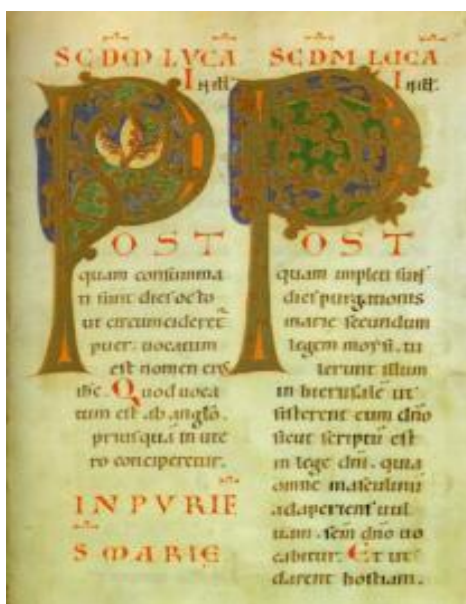 SCDM LVCA
IN ill̄.
P
OST
quam consumma
ti sunt dies octo
ut circumcideret̄
puer. uocatum
est nomen eiꝰ
ih̄c. Quod uoca
tum est ab anglō.
priusquā in ute
ro conciperetur.
IN PVRIF
S MARIE
SCDM LUCA
IN ill̄.
P
OST
quam impleti sunt
dies purgationis
marie secundum
legem moysi. tu
lerunt illum
in hierusalē ut
sisterent eum dn̄o
sicut scriptū est
in lege dn̄i. quia
omne masculinū
adaperiens uul
uam. scm̄ dn̄o uo
cabitur. Et ut
darent hostiam.